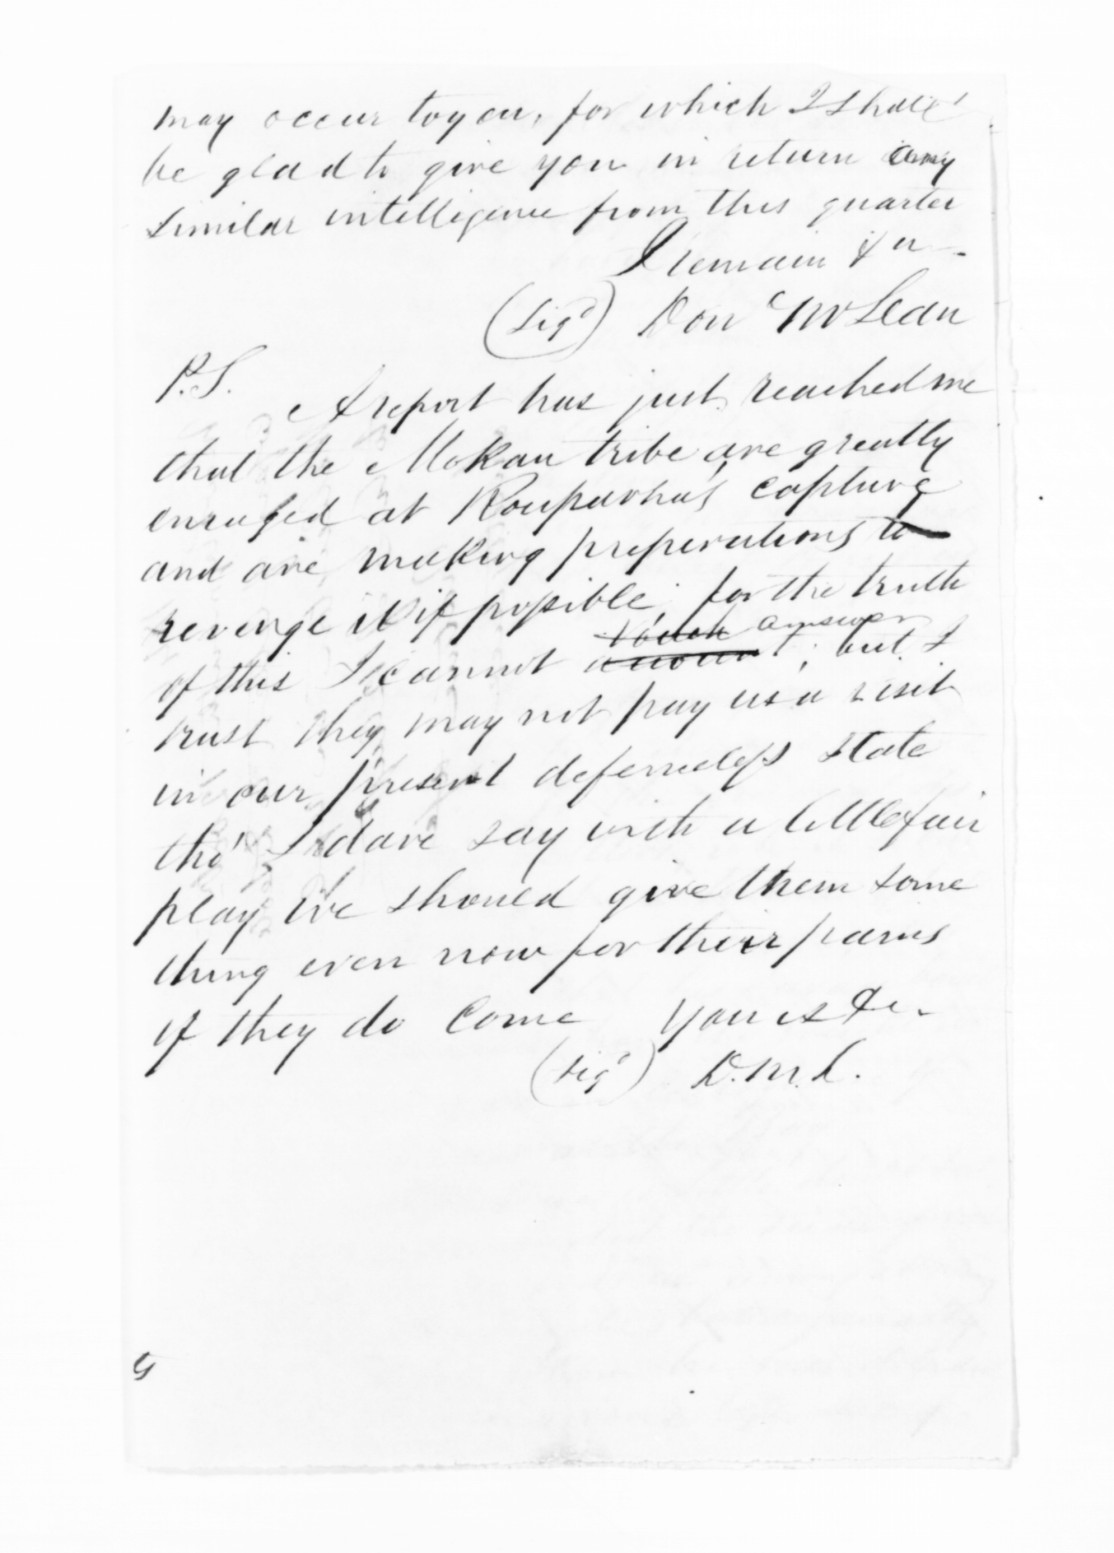 may occur to you, for which I shall
be glad to give you in return any
similar intelligence from this quarter
I remain &c -
(Sigd) Don McLean
P.S.
A report has just reached me
that the Mokau tribe are greatly
enraged at Rouparha's capture
and are making preparations to
revenge it if possible; for the truth
vouch answer
of this I cannot ; but I
trust they may not pay us a visit
in our present defenceless state
tho' I dare say with a little fair
play we should give them some
thing even now for their pains
if they do come yours &c.
(Sigd) D.M.L.